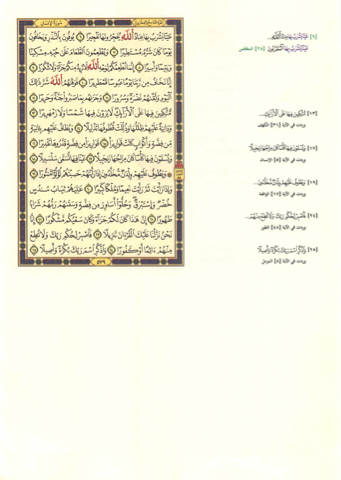 عَيْنًا يَشْرَبُ بِهَا عِبَادُ اللَّهِ يُفَجِّرُونَهَا تَفْجِيرًا ۝ يُوفُونَ بِالنَّذْرِ وَيَخَافُونَ
يَوْمًا كَانَ شَرُّهُ مُسْتَطِيرًا ۝ وَيُطْعِمُونَ الطَّعَامَ عَلَىٰ حُبِّهِ مِسْكِينًا
وَيَتِيمًا وَأَسِيرًا ۝ إِنَّمَا نُطْعِمُكُمْ لِوَجْهِ اللَّهِ لَا نُرِيدُ مِنكُمْ جَزَاءً وَلَا شُكُورًا ۝
إِنَّا نَخَافُ مِن رَّبِّنَا يَوْمًا عَبُوسًا قَمْطَرِيرًا ۝ فَوَقَاهُمُ اللَّهُ شَرَّ ذَٰلِكَ
الْيَوْمِ وَلَقَّاهُمْ نَضْرَةً وَسُرُورًا ۝ وَجَزَاهُم بِمَا صَبَرُوا جَنَّةً وَحَرِيرًا ۝
مُّتَّكِئِينَ فِيهَا عَلَى الْأَرَائِكِ لَا يَرَوْنَ فِيهَا شَمْسًا وَلَا زَمْهَرِيرًا ۝
وَدَانِيَةً عَلَيْهِمْ ظِلَالُهَا وَذُلِّلَتْ قُطُوفُهَا تَذْلِيلًا ۝ وَيُطَافُ عَلَيْهِم بِآنِيَةٍ
مِّن فِضَّةٍ وَأَكْوَابٍ كَانَتْ قَوَارِيرَا ۝ قَوَارِيرَا مِن فِضَّةٍ قَدَّرُوهَا تَقْدِيرًا ۝
وَيُسْقَوْنَ فِيهَا كَأْسًا كَانَ مِزَاجُهَا زَنجَبِيلًا ۝ عَيْنًا فِيهَا تُسَمَّىٰ سَلْسَبِيلًا ۝
وَيَطُوفُ عَلَيْهِمْ وِلْدَانٌ مُّخَلَّدُونَ إِذَا رَأَيْتَهُمْ حَسِبْتَهُمْ لُؤْلُؤًا مَّنثُورًا ۝
وَإِذَا رَأَيْتَ ثَمَّ رَأَيْتَ نَعِيمًا وَمُلْكًا كَبِيرًا ۝ عَالِيَهُمْ ثِيَابُ سُندُسٍ
خُضْرٌ وَإِسْتَبْرَقٌ وَحُلُّوا أَسَاوِرَ مِن فِضَّةٍ وَسَقَاهُمْ رَبُّهُمْ شَرَابًا
طَهُورًا ۝ إِنَّ هَٰذَا كَانَ لَكُمْ جَزَاءً وَكَانَ سَعْيُكُم مَّشْكُورًا ۝ إِنَّا
نَحْنُ نَزَّلْنَا عَلَيْكَ الْقُرْآنَ تَنزِيلًا ۝ فَاصْبِرْ لِحُكْمِ رَبِّكَ وَلَا تُطِعْ
مِنْهُمْ آثِمًا أَوْ كَفُورًا ۝ وَاذْكُرِ اسْمَ رَبِّكَ بُكْرَةً وَأَصِيلًا ۝
٥٧٩
[٦] عَيْنًا يَشْرَبُ بِهَا عِبَادُ اللَّهِ...
عَيْنًا يَشْرَبُ بِهَا الْمُقَرَّبُونَ [٢٨] المطففين
[١٣] مُتَّكِئِينَ فِيهَا عَلَى الْأَرَائِكِ...
وردت في الآية [٣١] الكهف
[١٧] وَيُسْقَوْنَ فِيهَا كَأْسًا كَانَ مِزَاجُهَا زَنجَبِيلًا
[١٩] وَيَطُوفُ عَلَيْهِمْ وِلْدَانٌ مُّخَلَّدُونَ...
وردت في الآية [١٧] الواقعة
[٢٤] فَاصْبِرْ لِحُكْمِ رَبِّكَ وَلَا تُطِعْ مِنْهُمْ...
وردت في الآية [٤٨] الطور
[٢٥] وَاذْكُرِ اسْمَ رَبِّكَ بُكْرَةً وَأَصِيلًا
وردت في الآية [٨] المزمل